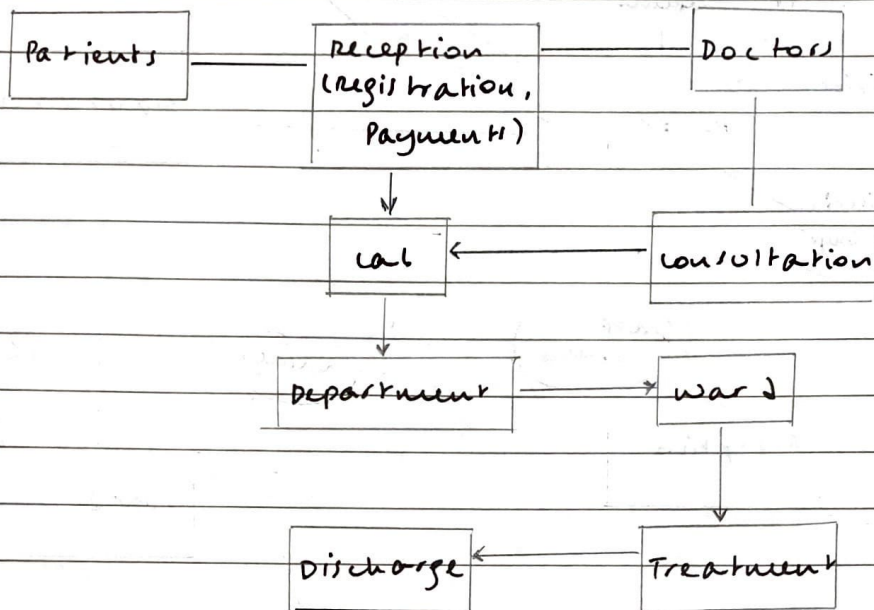 Patients
Reception
(Registration,
Payments)
Doctors
Lab
Consultation
Department
Ward
Discharge
Treatment